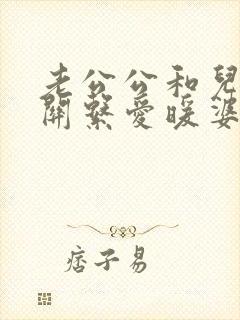 老公公和兒
關繫愛暖婆
痞子易